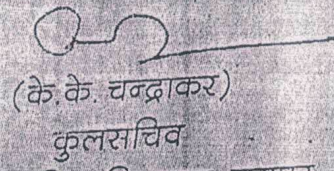 (के.के. चन्द्राकर)
कुलसचिव